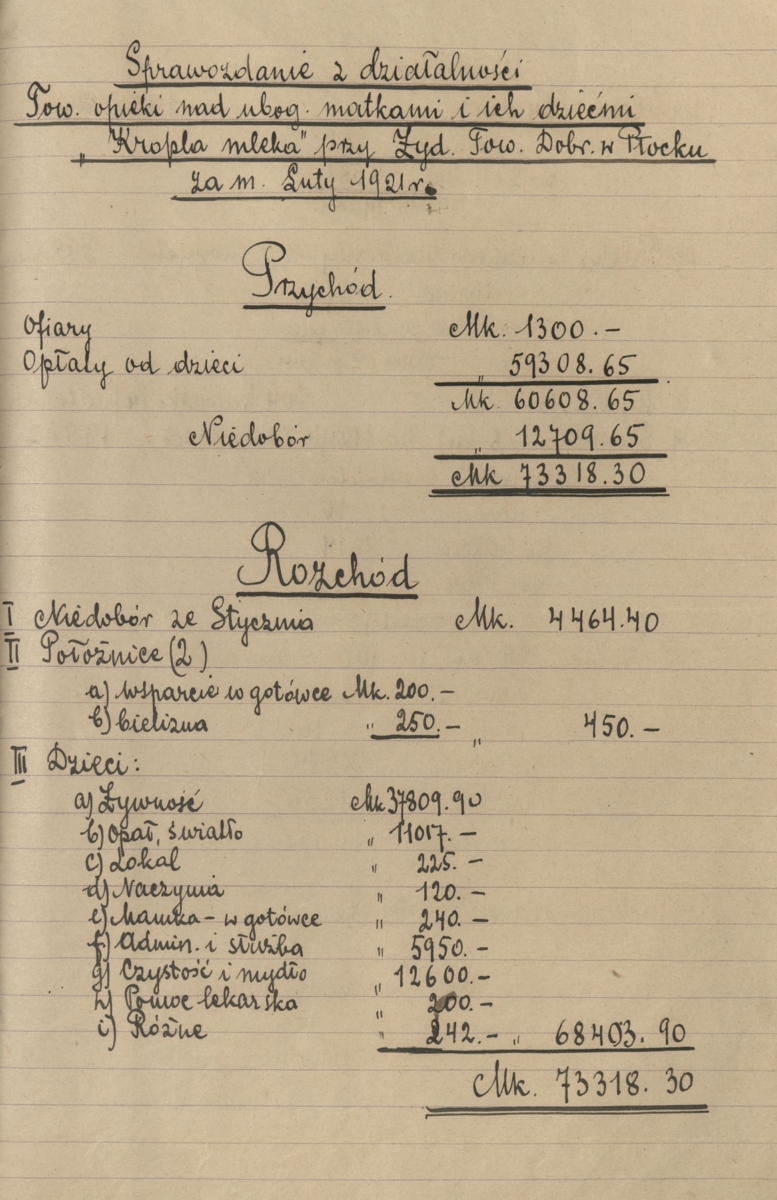 Sprawozdanie z działalności
Tow. opieki nad ubog. matkami i ich dziećmi
„Kropla mleka" przy Żyd. Tow. Dobr. w Płocku
za m. Luty 1921 r.
Przychód.
Ofiary Mk. 1300.–
Opłaty od dzieci „ 59308.65
Mk. 60608.65
Niedobór „ 12709.65
Mk 73318.30
Rozchód
I Niedobór ze Stycznia Mk. 4464.40
II Położnice (2)
a) wsparcie w gotówce Mk. 200.–
b) bielizna „ 250.– „ 450.–
III Dzieci:
a) Żywność Mk 37809.90
b) Opał, światło „ 11017.–
c) Lokal „ 225.–
d) Naczynia „ 120.–
e) Mamka – w gotówce „ 240.–
f) Admin. i służba „ 5950.–
g) Czystość i mydło „ 12600.–
h) Pomoc lekarska „ 200.–
i) Różne „ 242.– „ 68403.90
Mk. 73318.30